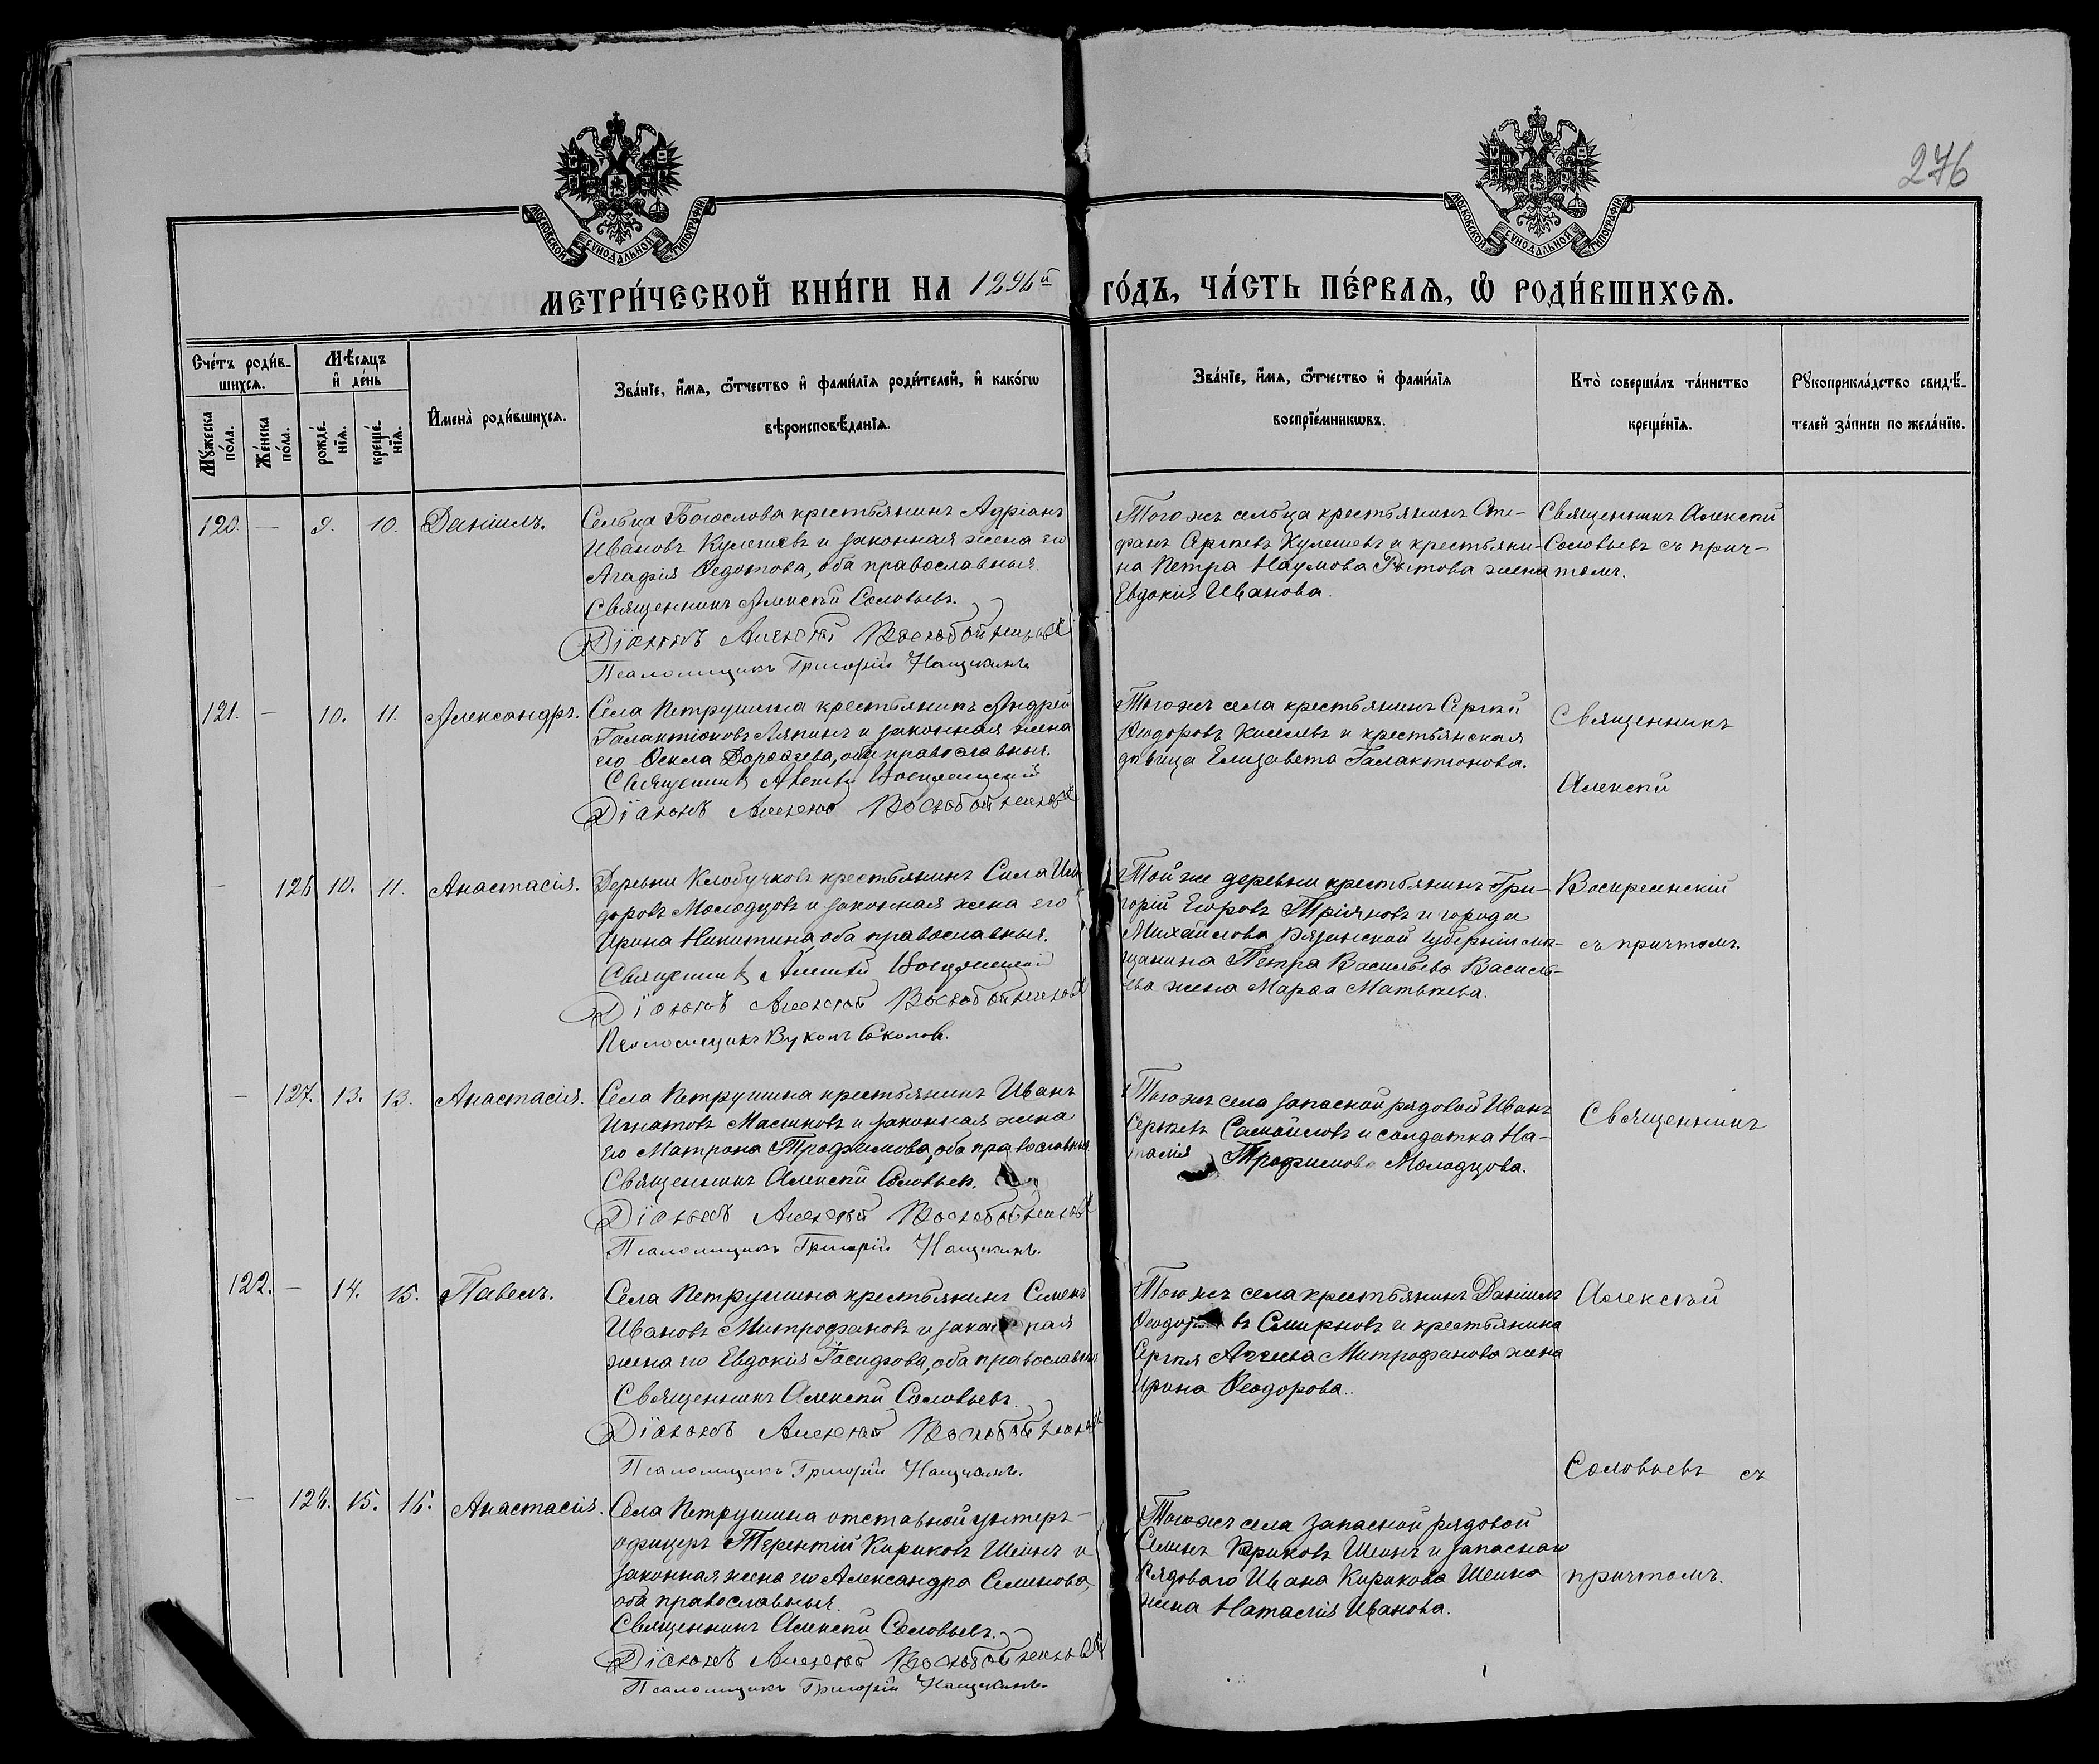 276
МОСКОВСКОЙ СѴНОДАЛЬНОЙ ТИПОГРАФІИ
МОСКОВСКОЙ СѴНОДАЛЬНОЙ ТИПОГРАФІИ
МЕТРИ́ЧЕСКОЙ КНИ́ГИ НА 1896й ГО́ДЪ, ЧА́СТЬ ПЕ́РВАѦ, Ѡ РОДИ́ВШИХСѦ.
Сче́тъ роди́в-
шихсѧ.
Мꙋ́жеска по́ла.
Же́нска по́ла.
Мѣ́сяцъ
и҆ де́нь
рожде́-
нїѧ.
креще́-
нїѧ.
И҆мена̀ роди́вшихсѧ.
Зва́нїе, и҆́мѧ, ѻ҆́тчество и҆ фами́лїѧ роди́телей, и҆ како́гѡ
вѣроисповѣ́данїѧ.
Зва́нїе, и҆́мѧ, ѻ҆́тчество и҆ фами́лїѧ
воспрїе́мникѡвъ.
Кто̀ соверша́лъ та́инство
креще́нїѧ.
Рꙋкоприкла́дство свидѣ́-
телей за́писи по жела́нїю.
120. — 9. 10. Даніилъ.
Сельца Богослова крестьянинъ Адріанъ
Ивановъ Кулешевъ и законная жена его
Агафія Ѳедотова, оба православныя.
Священникъ Алексѣй Соловьевъ.
Діаконъ Алексѣй Воскобойниковъ
Псаломщикъ Григорій Нащекинъ
Того жъ сельца крестьянинъ Сте-
фанъ Сергѣевъ Кулешевъ и крестьяни-
на Петра Наумова Рытова жена
Евдокія Иванова.
Священникъ Алексѣй
Соловьевъ съ прич-
томъ.
121. — 10. 11. Александръ.
Села Петрушина крестьянинъ Андрей
Галактіоновъ Ляпинъ и законная жена
его Ѳекла Дороѳеева, оба православныя.
Священникъ Алексѣй Воскресенскій
Діаконъ Алексѣй Воскобойниковъ
Того жъ села крестьянинъ Сергѣй
Ѳеодоровъ Киселевъ и крестьянская
дѣвица Елизавета Галактіонова.
Священникъ
Алексѣй
— 126 10. 11. Анастасія.
Деревни Клобучковъ крестьянинъ Сила Иси
доровъ Молодцовъ и законная жена его
Ирина Никитина, оба православныя.
Священникъ Алексѣй Воскресенскій
Діаконъ Алексѣй Воскобойниковъ
Псаломщикъ Вуколъ Соколовъ.
Той же деревни крестьянинъ Гри-
горій Егоровъ и города
Михайлова Рязанской губерніи мѣ-
щанина Петра Васильева Василь-
ева жена Марѳа Матвѣева.
Воскресенскій
съ причтомъ.
— 127. 13. 13. Анастасія.
Села Петрушина крестьянинъ Иванъ
Игнатовъ Масликовъ и законная жена
его Матрона Трофимова, оба православныя
Священникъ Алексѣй Соловьевъ.
Діаконъ Алексѣй Воскобойниковъ
Псаломщикъ Григорій Нащекинъ.
Того жъ села запасной рядовой Иванъ
Сергѣевъ Самойловъ и солдатка На-
талія Трофимова Молодцова.
Священникъ
122. — 14. 15. Павелъ.
Села Петрушина крестьянинъ Симеонъ
Ивановъ Митрофановъ и законная
жена его Евдокія Іосифова, оба православныя
Священникъ Алексѣй Соловьевъ.
Діаконъ Алексѣй Воскобойниковъ
Псаломщикъ Григорій Нащекинъ.
Того жъ села крестьянинъ Даніилъ
Ѳеодоровъ Смирновъ и крестьянина
Сергѣя Аггеева Митрофанова жена
Ирина Ѳеодорова.
Алексѣй
Соловьевъ съ
— 128. 15. 16. Анастасія.
Села Петрушина отставной унтеръ-
офицеръ Терентій Кириковъ Шеинъ и
законная жена его Александра Семенова,
оба православныя.
Священникъ Алексѣй Соловьевъ.
Діаконъ Алексѣй Воскобойниковъ
Псаломщикъ Григорій Нащекинъ.
Того жъ села запасной рядовой
Семенъ Кириковъ Шеинъ и запаснаго
рядоваго Ивана Кирикова Шеина
жена Наталія Иванова.
причтомъ.